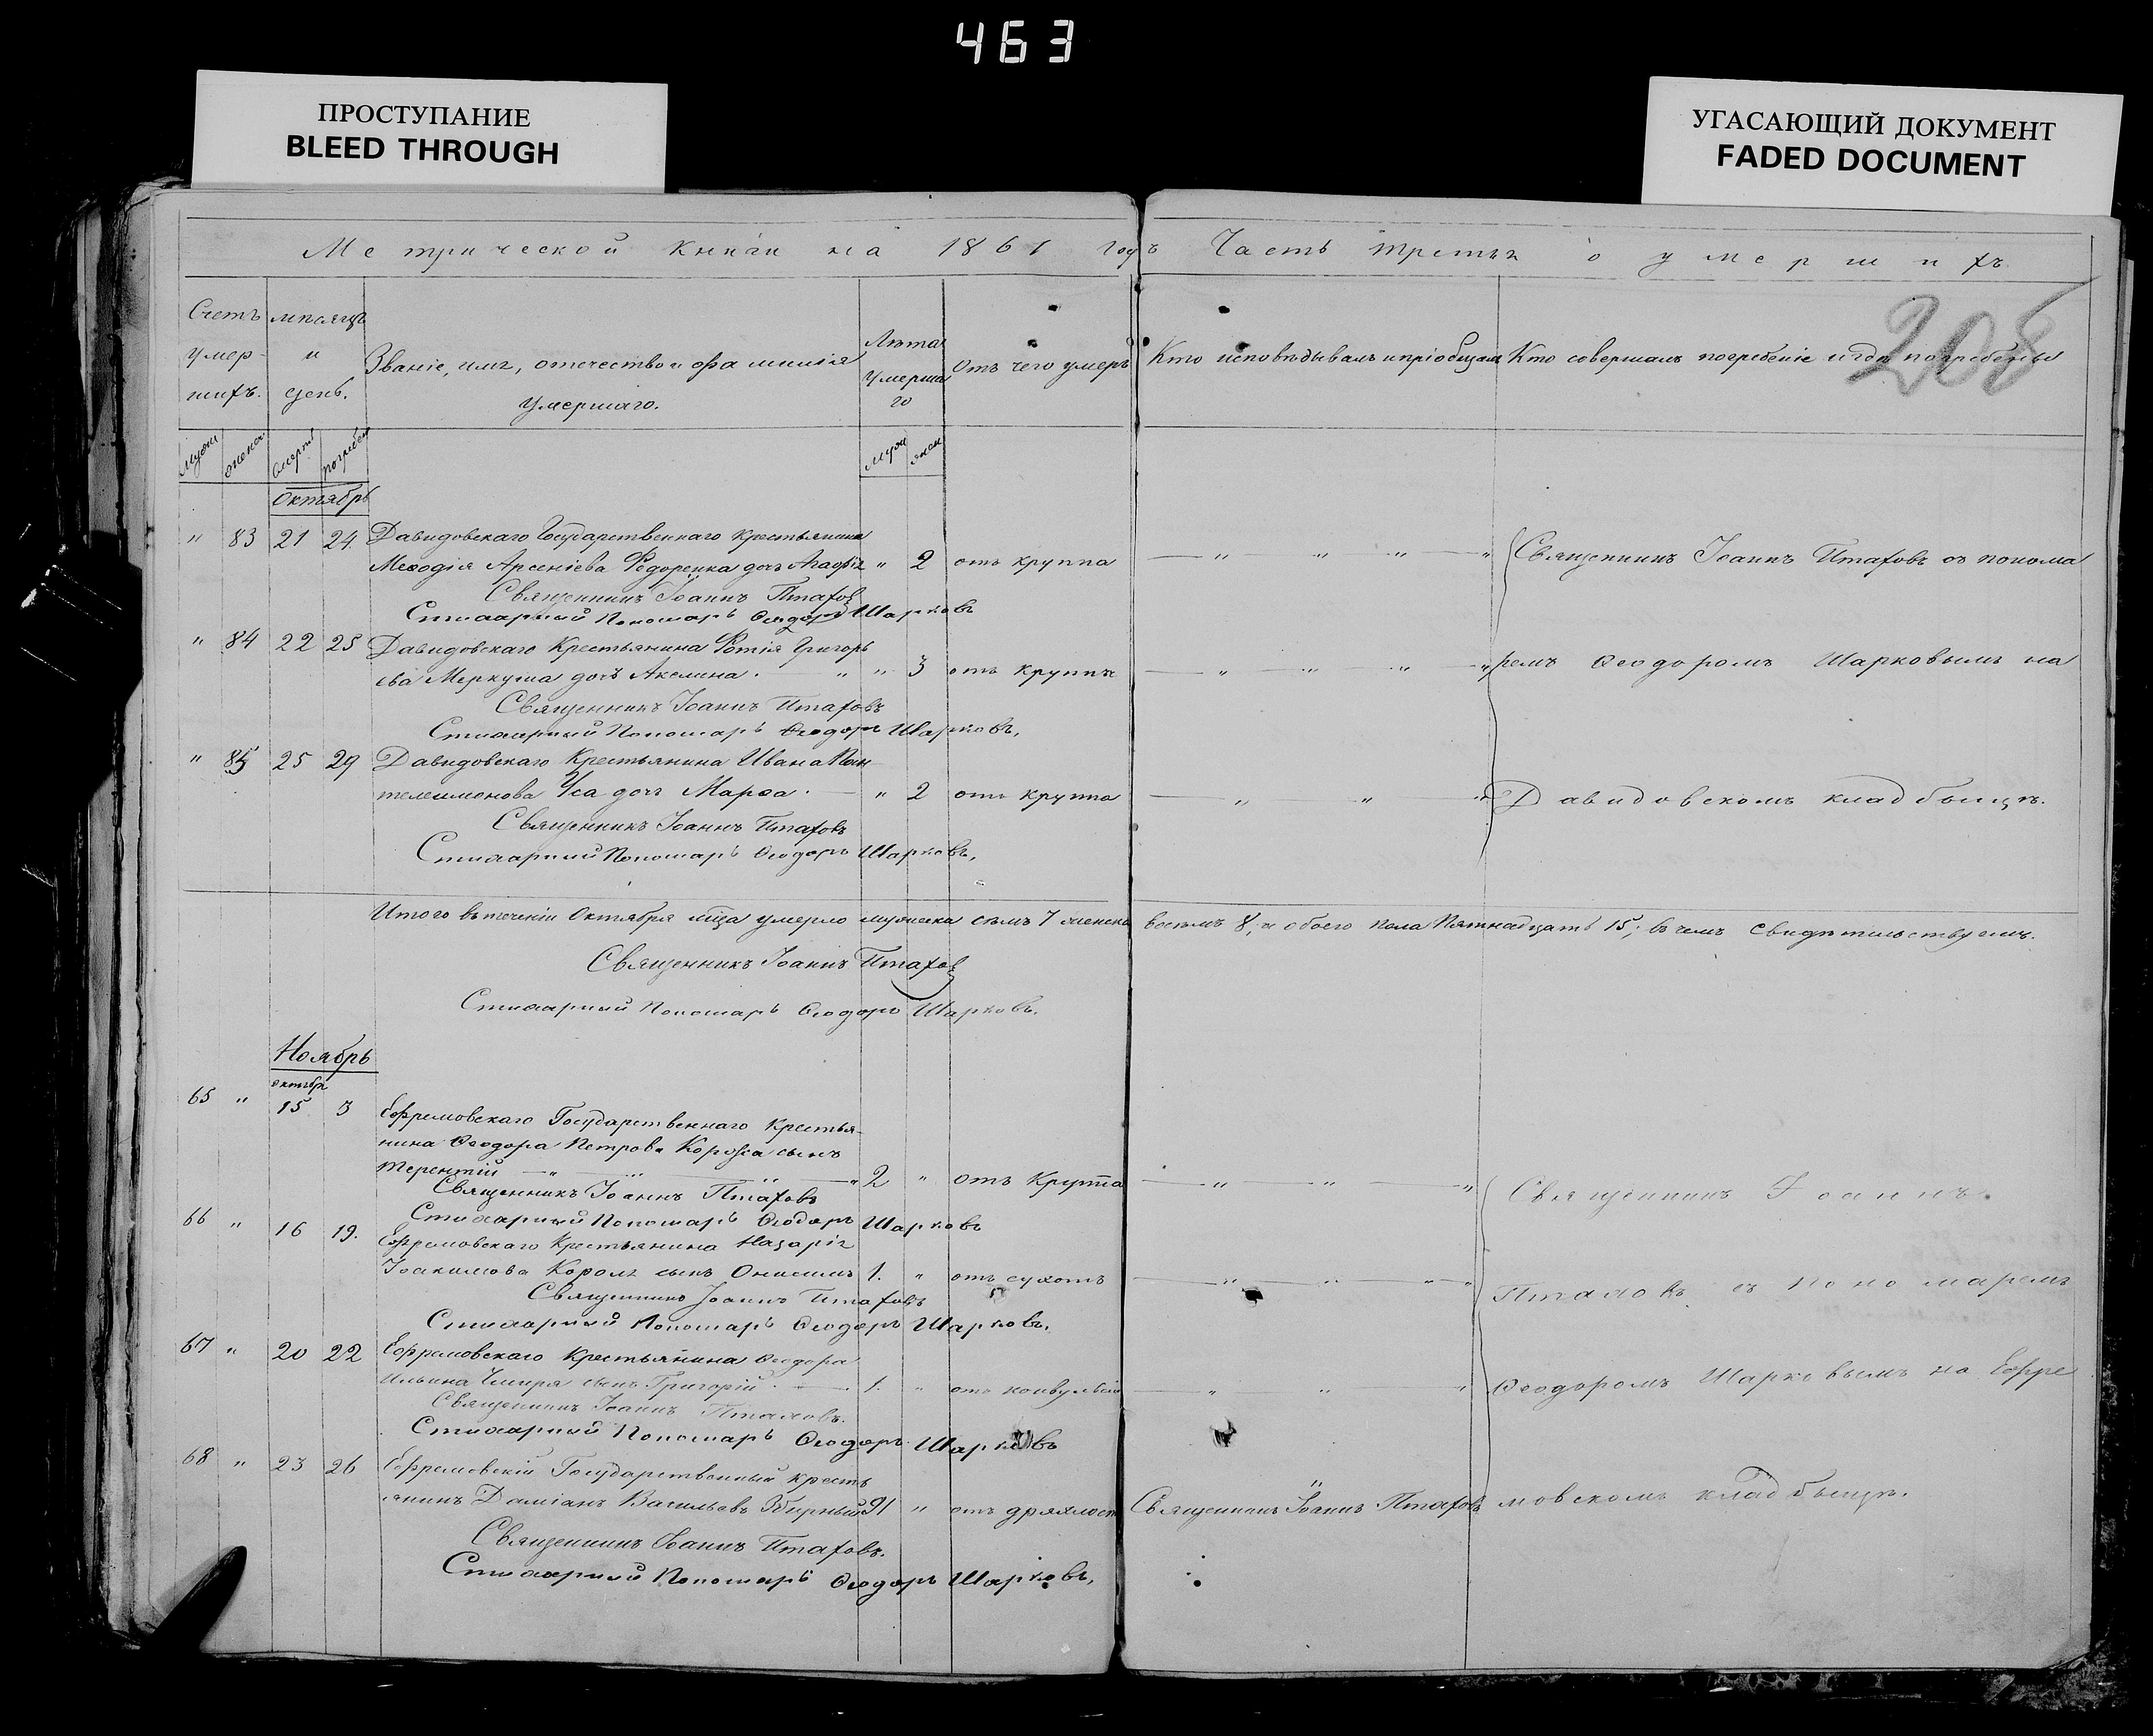 463
ПРОСТУПАНИЕ
BLEED THROUGH
УГАСАЮЩИЙ ДОКУМЕНТ
FADED DOCUMENT
Метрической книги на 1861 годъ Часть третья о умершихъ
208
Счетъ умершихъ.
мѣсяцъ и день.
Званіе, имя, отечество и фамилія умершаго.
Лѣта умершаго
Отъ чего умеръ
Кто исповѣдывалъ и пріобщалъ
Кто совершалъ погребеніе и гдѣ погребены
Октябрь
" 83 21 24. Давидовскаго Государственнаго крестьянина
Меѳодія Арсеніева Федоренка дочь Агафія " 2 отъ круппа
Священникъ Іоаннъ Птаховъ съ понома
Священникъ Іоаннъ Птаховъ
Стихарный Пономарь Ѳеодоръ Шарковъ
" 84 22 25 Давидовскаго Крестьянина Фотія Григорь
ева Меркуша дочь Акилина. " " 3 отъ круппа
ремъ Ѳеодоромъ Шарковымъ на
Священникъ Іоаннъ Птаховъ
Стихарный Пономарь Ѳеодоръ Шарковъ.
" 85 25 29 Давидовскаго Крестьянина Ивана Пан
телеимонова Уса дочь Марѳа. " 2 отъ круппа
Давидовскомъ кладбищѣ.
Священникъ Іоаннъ Птаховъ
Стихарный Пономарь Ѳеодоръ Шарковъ.
Итого въ теченіи Октября мца умерло мужеска семъ 7 женска восемъ 8, и обоего пола Пятнадцать 15; въ чемъ свидѣтельствуемъ.
Священникъ Іоаннъ Птаховъ
Стихарный Пономарь Ѳеодоръ Шарковъ.
Ноябрь
октября
65 " 15 3 Ефремовскаго Государственнаго Крестья-
нина Ѳеодора Петрова сынъ
Терентій " " " 2 " отъ Круппа
Священникъ Іоаннъ
Священникъ Іоаннъ Птаховъ
Стихарный Пономарь Ѳеодоръ Шарковъ
66 " 16 19. Ефремовскаго Крестьянина Назарія
Іоакимова Короля сынъ Онисимъ 1. " отъ сухотъ
Птаховъ съ пономаремъ
Священникъ Іоаннъ Птаховъ
Стихарный Пономарь Ѳеодоръ Шарковъ.
67 " 20 22 Ефремовскаго Крестьянина Ѳеодора
Ильина сынъ Григорій. 1. " отъ конвульсіи
Ѳеодоромъ Шарковымъ на Ефре
Священникъ Іоаннъ Птаховъ.
Стихарный Пономарь Ѳеодоръ Шарковъ
68 " 23 26 Ефремовскій Государственный кресть
янинъ Даміанъ Васильевъ 91 " отъ дряхлост Священникъ Іоаннъ Птаховъ
мовскомъ кладбищѣ.
Священникъ Іоаннъ Птаховъ.
Стихарный Пономарь Ѳеодоръ Шарковъ.